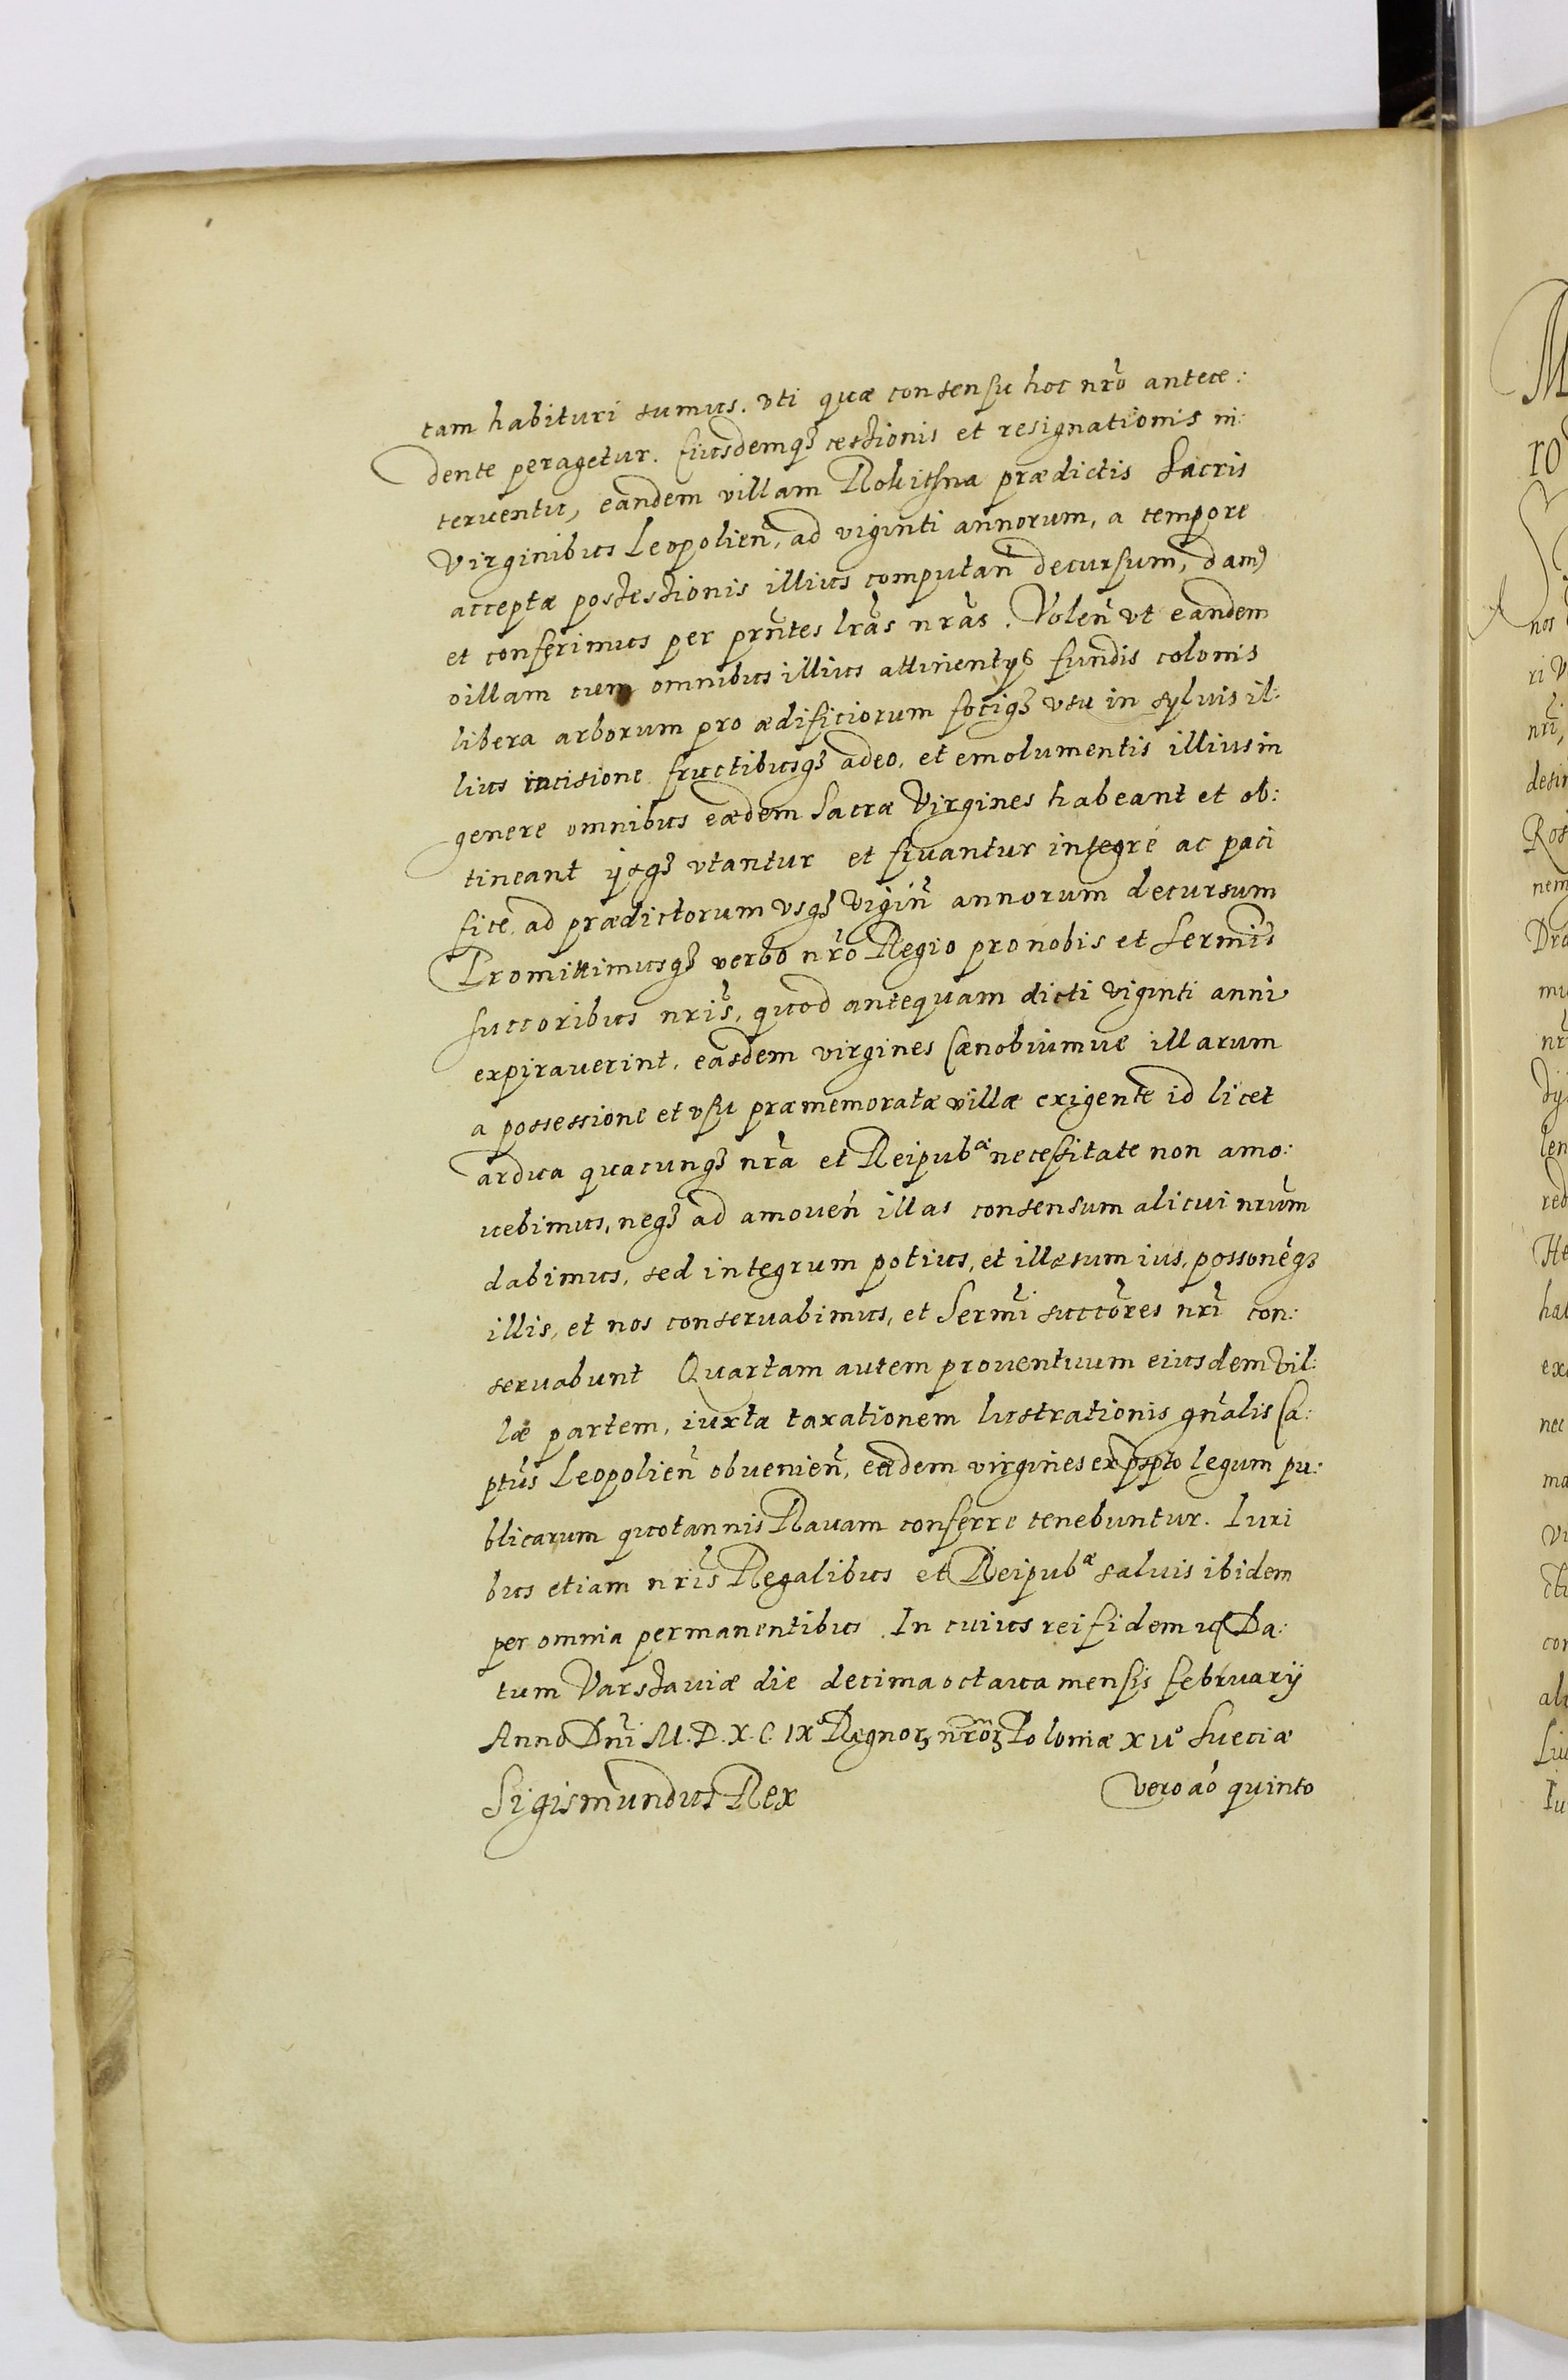 tam habituri sumus. vti quæ consensu hoc nr̃o antece:
dente peragetur. Eiusdemq₃ cessionis et resignationis in:
teruentu, eandem villam Rokithna prædictis Sacris
Virginibus Leopolien̄, ad viginti annorum, a tempore
acceptæ possessionis illius computan̄ decursum, dam9
et conferimus per prñtes lr̃as nr̃as. Volen̄ vt eandem
villam cum omnibus illius attinentijs fundis colonis
libera arborum pro ædificiorum fociq₃ vsu in syluis il:
lius incisione fructibusq₃ adeo, et emolumentis illius in
genere omnibus eædem Sacræ Virgines habeant et ob:
tineant ijsq₃ vtantur et fruantur integre ac paci
fice, ad prædictorum vsq₃ vigin̄ annorum decursum
Promittimusq₃ verbo nr̃o Regio pro nobis et Sermis̃
succoribus nris̃, quod antequam dicti viginti anni
expirauerint, easdem virgines Cænobiumue illarum
a possessione et vsu præmemoratæ villæ exigente id licet
ardua quacunq₃ nr̃a et Reipubᵃᵉ necessitate non amo:
uebimus, neq₃ ad amouen̄ illas consensum alicui nrũm
dabimus, sed integrum potius, et illæsum ius, possonẽq₃
illis, et nos conseruabimus, et Sermĩ succõres nrĩ con:
seruabunt Quartam autem prouentuum eiusdem vil:
læ partem, iuxta taxationem lustrationis gñalis Ca:
ptũs Leopolien̄ obuenien̄, eædem virgines ex pspto legum pu:
blicarum quotannis Rauam conferre tenebuntur. Iuri
bus etiam nrĩs Regalibus et Reipubᵃᵉ saluis ibidem
per omnia permanentibus. In cuius rei fidem Da:
tum Varsauiæ die decima octaua mensis februarij
Anno Dnĩ M.D.X.C.IXº Regnoꝝ nr̃oꝝ Poloniæ XIIº Sueciæ
Sigismundus Rex vero aõ quinto